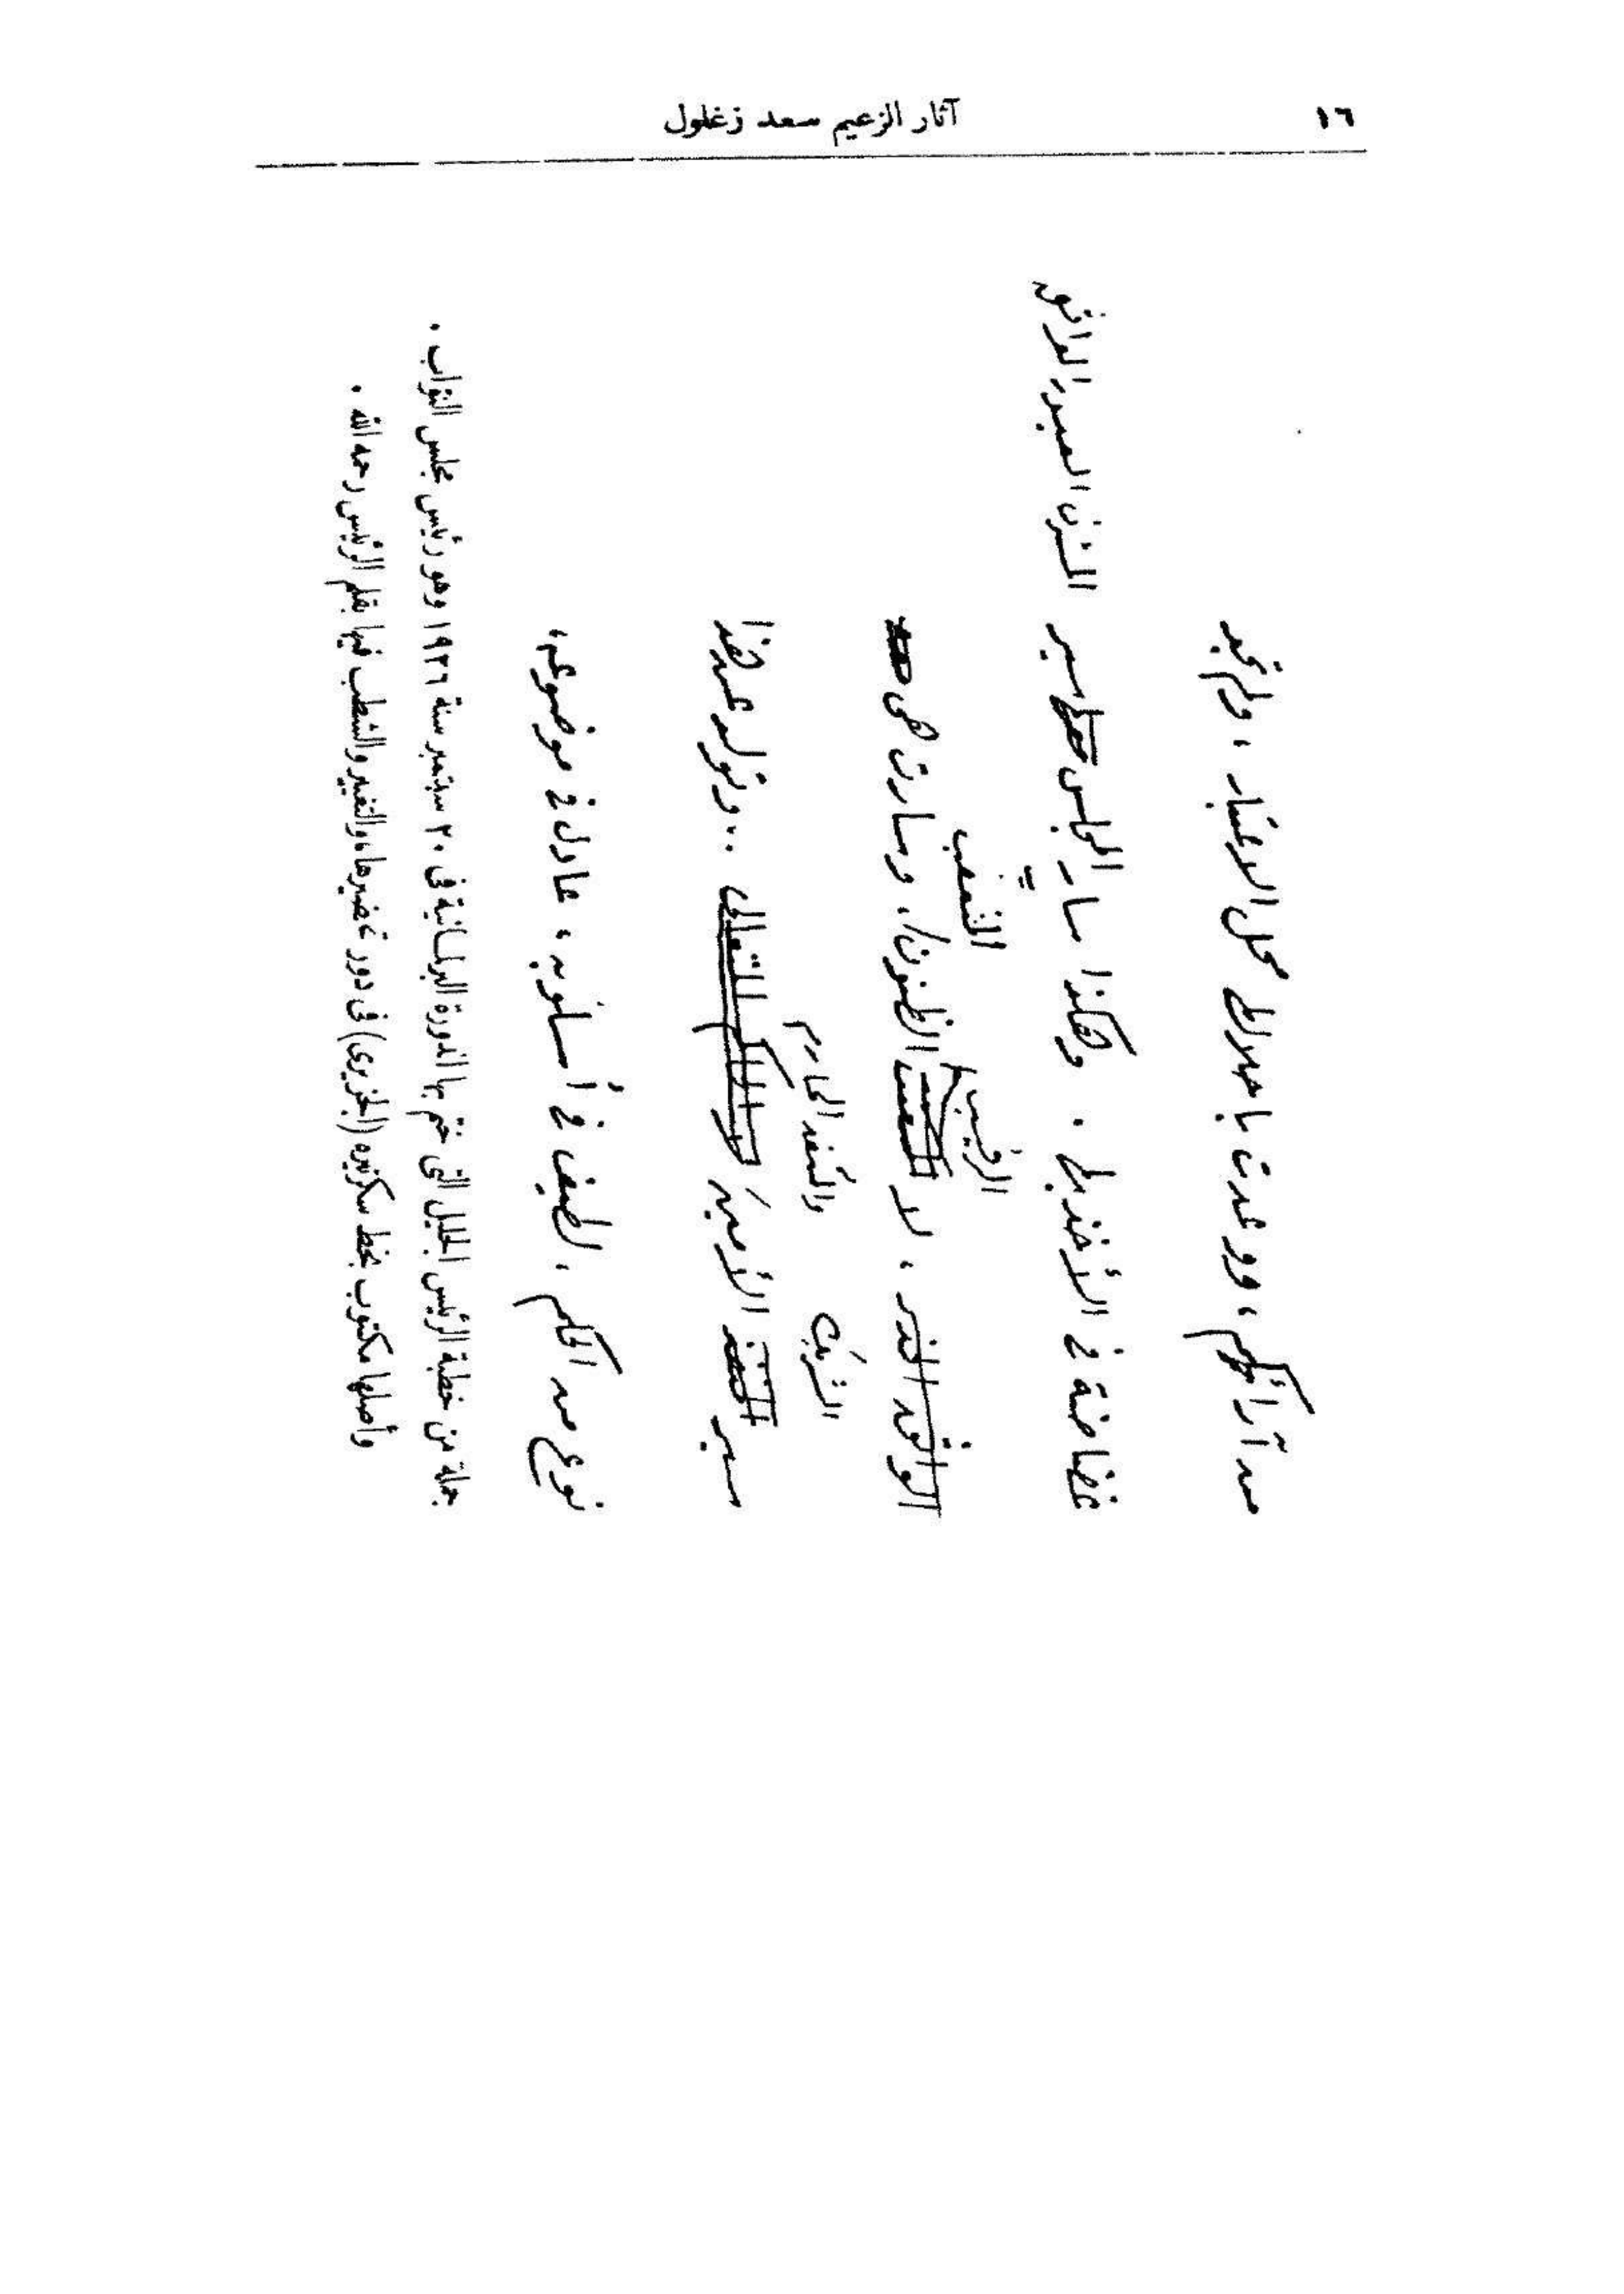 ١٦
آثار الزعيم سعد زغلول
من آرائكم ، ووعدت بإحلالها محل الاعتبار ، ولم تجد
غضاضة في الأخذ بها . وهكذا سار المجلس سير الشريف العميد الواثق
المتعصب
الرقيب
الواثق الحذر ، لا الظنون ، وسارت هى
الشريك والمنفذ الحازم
سير المنفذ الأمين .. وتولد عن هذا
نوع من الحكم ، لطيف في أسلوبه ، عادل في موضوعه ،
جملة من خطبة الرئيس الجليل التى ختم بها الدورة البرلمانية فى ٢٠ سبتمبر سنة ١٩٢٦ وهو رئيس مجلس النواب .
وأصلها مكتوب بخط سكرتيره (الجزيرى) فى دور تحضيرها، والتغيير والشطب فيها بقلم الرئيس رحمه الله .